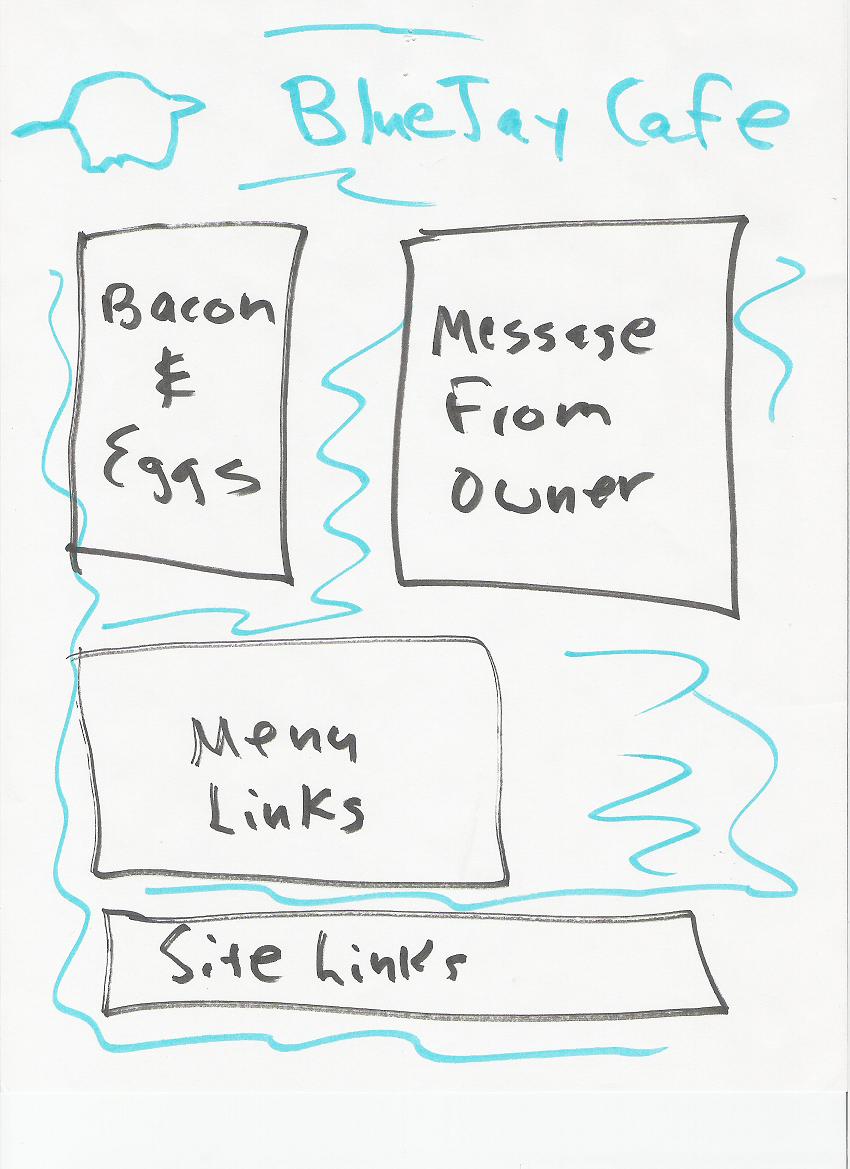 BlueJay Cafe
Bacon
&
Eggs
Message
From
Owner
Menu
Links
Site Links